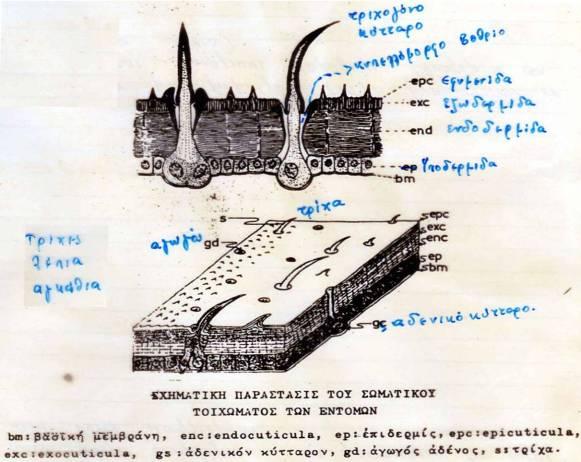 τριχογόνο
κύτταρο
κυπελλόμορφο βοθρίο
epc εξυμενίδα
exc εξωδερμίδα
end ενδοδερμίδα
ep υποδερμίδα
bm
s
τρίχα
Τρίχες
λέπια
αγκάθια
αγωγός
gd
epc
exc
enc
ep
bm
gs αδενικό κύτταρο.
ΣΧΗΜΑΤΙΚΗ ΠΑΡΑΣΤΑΣΙΣ ΤΟΥ ΣΩΜΑΤΙΚΟΥ
ΤΟΙΧΩΜΑΤΟΣ ΤΩΝ ΕΝΤΟΜΩΝ
bm:βασική μεμβράνη, enc:endocuticula, ep:ἐπιδερμίς, epc:epicuticula,
exc:exocuticula, gs:ἀδενικόν κύτταρον, gd:ἀγωγός ἀδένος, s:τρίχα.